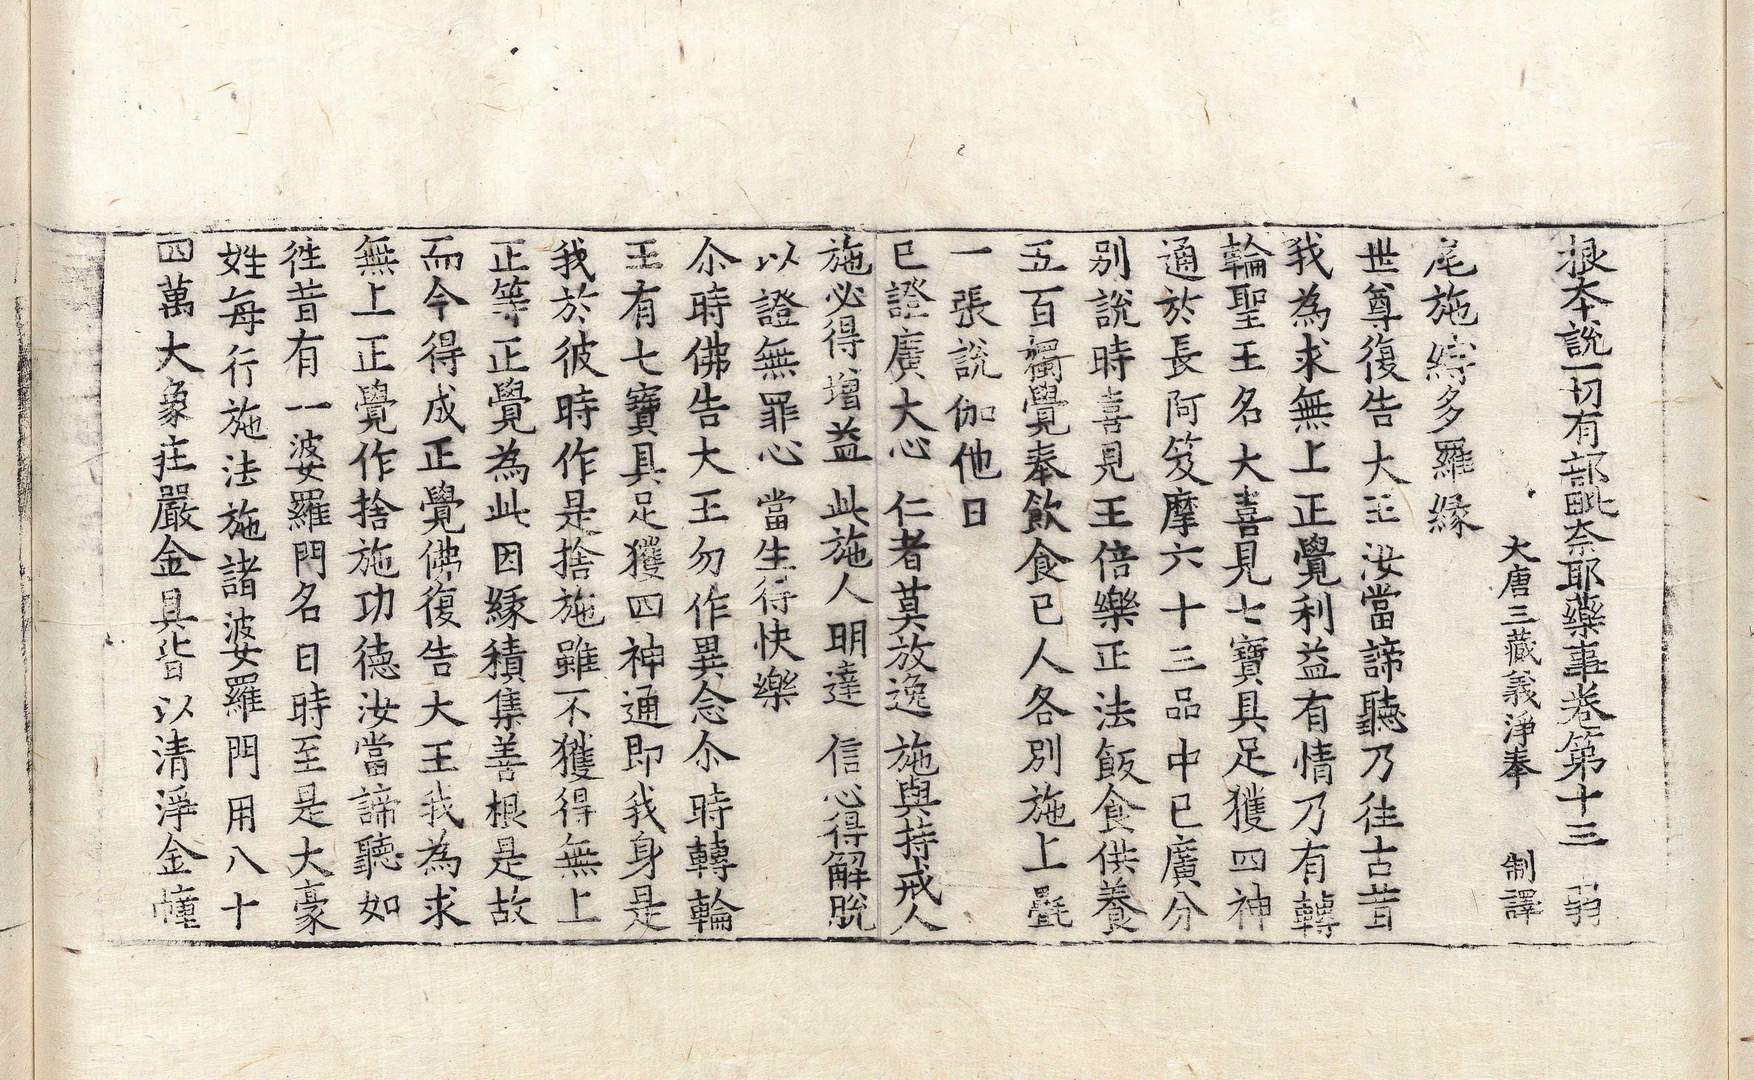 根本說一切有部毗奈耶藥事卷第十三
大唐三藏義淨奉 制譯
尾施縍多羅緣
世尊復告大王汝當諦聽乃往古昔
我為求無上正覺利益有情乃有轉
輪聖王名大喜見七寶具足獲四神
通於長阿笈摩六十三品中已廣分
別說時喜見王倍樂正法飯食供養
五百獨覺奉飲食已人各別施上㲲
一張說伽他曰
已證廣大心 仁者莫放逸 施與持戒人
施必得增益 此施人明達 信心得解脫
以證無罪心 當生得快樂
尒時佛告大王勿作異念尒時轉輪
王有七寶具足獲四神通即我身是
我於彼時作是捨施雖不獲得無上
正等正覺為此因緣積集善根是故
而今得成正覺佛復告大王我為求
無上正覺作捨施功德汝當諦聽如
徃昔有一婆羅門名曰時至是大豪
姓每行施法施諸婆羅門用八十
四萬大象莊嚴金具皆以清淨金幢